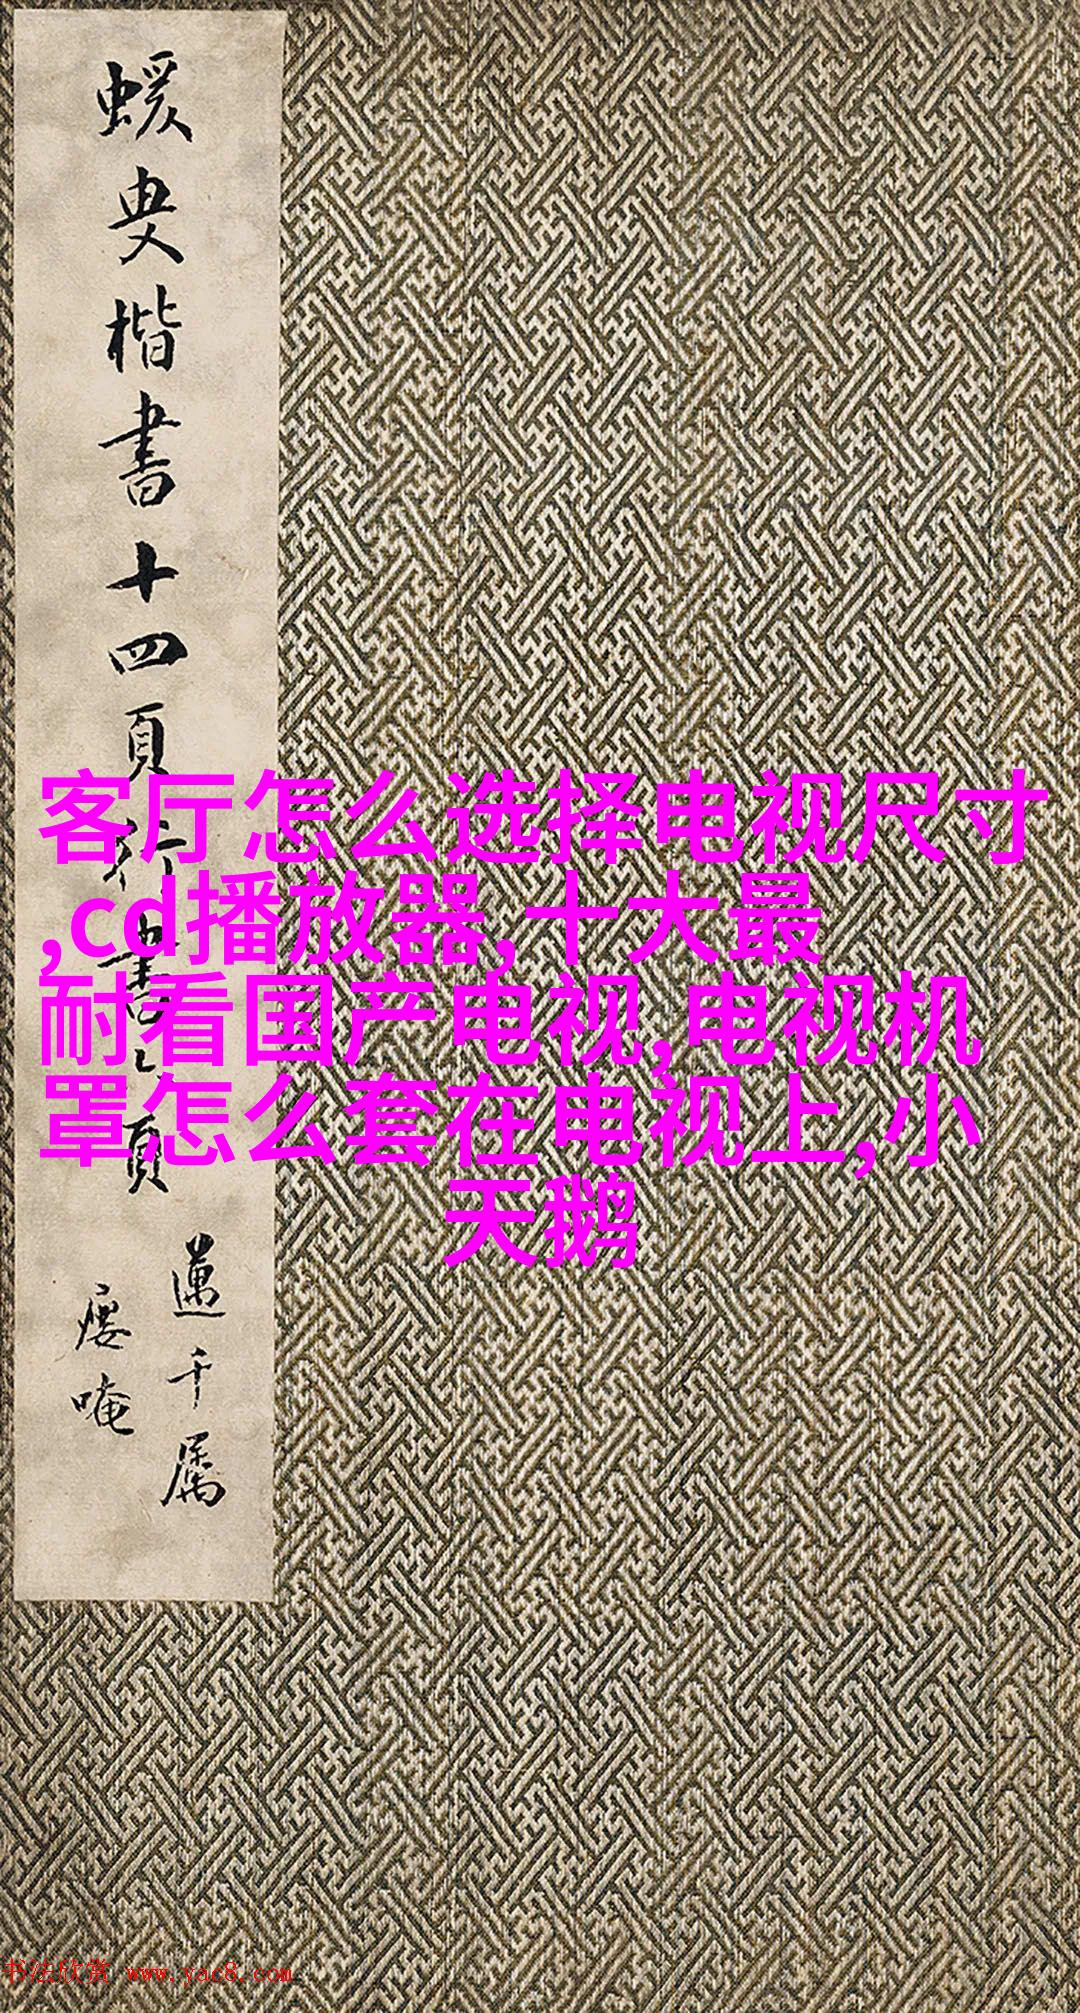 蝯叟楷書十四頁行書七頁
邁千屬
廔唵
客厅怎么选择电视尺寸
,cd播放器,十大最
耐看国产电视,电视机
罩怎么套在电视上,小
天鹅
书法欣赏 www.yac8.com